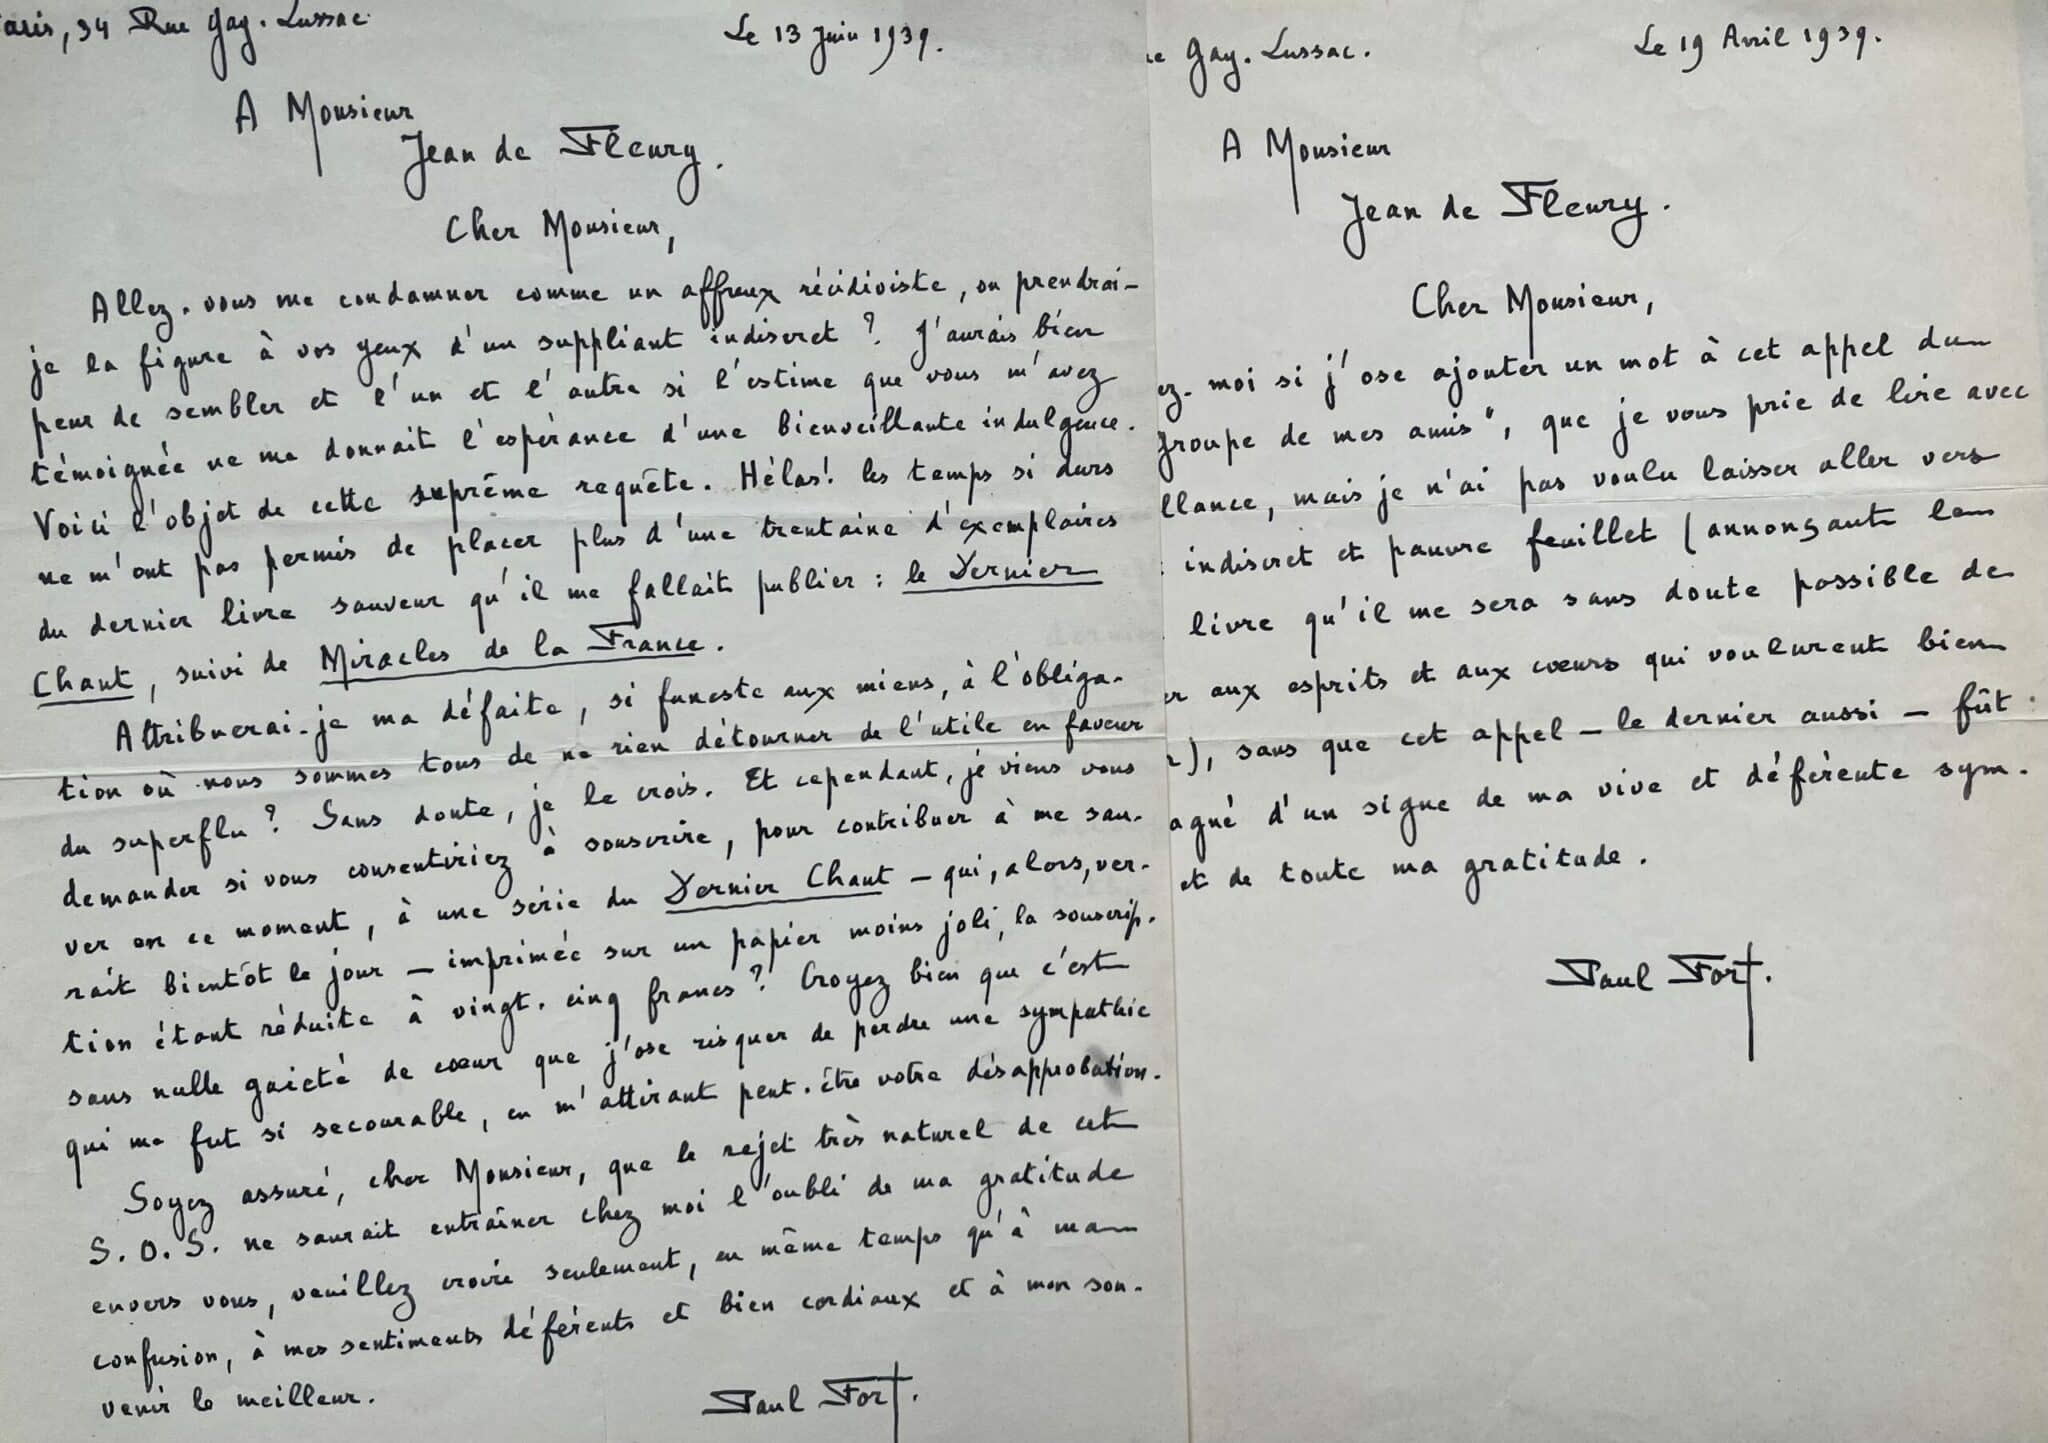 aris, 34 Rue Gay-Lussac
Le 13 Juin 1939.
A Monsieur
Jean de Fleury.
Cher Monsieur,
Allez-vous me condamner comme un affreux récidiviste, ou prendrai-
je la figure à vos yeux d'un suppliant indiscret ? J'aurais bien
peur de sembler et l'un et l'autre si l'estime que vous m'avez
témoignée ne me donnait l'espérance d'une bienveillante indulgence.
Voici l'objet de cette suprême requête. Hélas! les temps si durs
ne m'ont pas permis de placer plus d'une trentaine d'exemplaires
du dernier livre sauveur qu'il me fallait publier : le Dernier
Chant, suivi de Miracles de la France.
Attribuerai-je ma défaite, si funeste aux miens, à l'obliga-
tion où nous sommes tous de ne rien détourner de l'utile en faveur
du superflu ? Sans doute, je le crois. Et cependant, je viens vous
demander si vous consentiriez à souscrire, pour contribuer à me sau-
ver en ce moment, à une série du Dernier Chant – qui, alors, ver-
rait bientôt le jour – imprimée sur un papier moins joli, la souscrip-
tion étant réduite à vingt-cinq francs ? Croyez bien que c'est
sans nulle gaieté de cœur que j'ose risquer de perdre une sympathie
qui me fut si secourable, en m'attirant peut-être votre désapprobation.
Soyez assuré, cher Monsieur, que le rejet très naturel de cet
S.O.S. ne saurait entraîner chez moi l'oubli de ma gratitude
envers vous, veuillez croire seulement, en même temps qu'à ma
confusion, à mes sentiments déférents et bien cordiaux et à mon sou-
venir le meilleur.
Paul Fort.
ue Gay-Lussac.
Le 19 Avril 1939.
A Monsieur
Jean de Fleury.
Cher Monsieur,
ez-moi si j'ose ajouter un mot à cet appel du
groupe de mes amis", que je vous prie de lire avec
llance, mais je n'ai pas voulu laisser aller vers
indiscret et pauvre feuillet (annonçant le
livre qu'il me sera sans doute possible de
er aux esprits et aux cœurs qui voulurent bien
r), sans que cet appel – le dernier aussi – fût
agné d'un signe de ma vive et déférente sym-
et de toute ma gratitude.
Paul Fort.